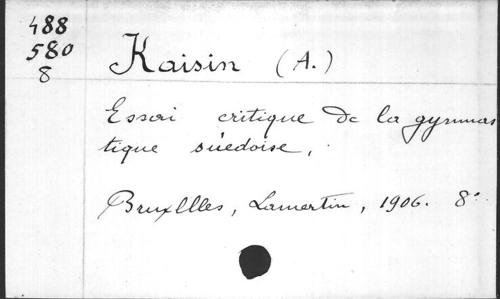 488
580
8
Kaisin (A.)
Essai critique de la gymnas
tique suedoise,
Bruxlles, Lamertin, 1906. 8°